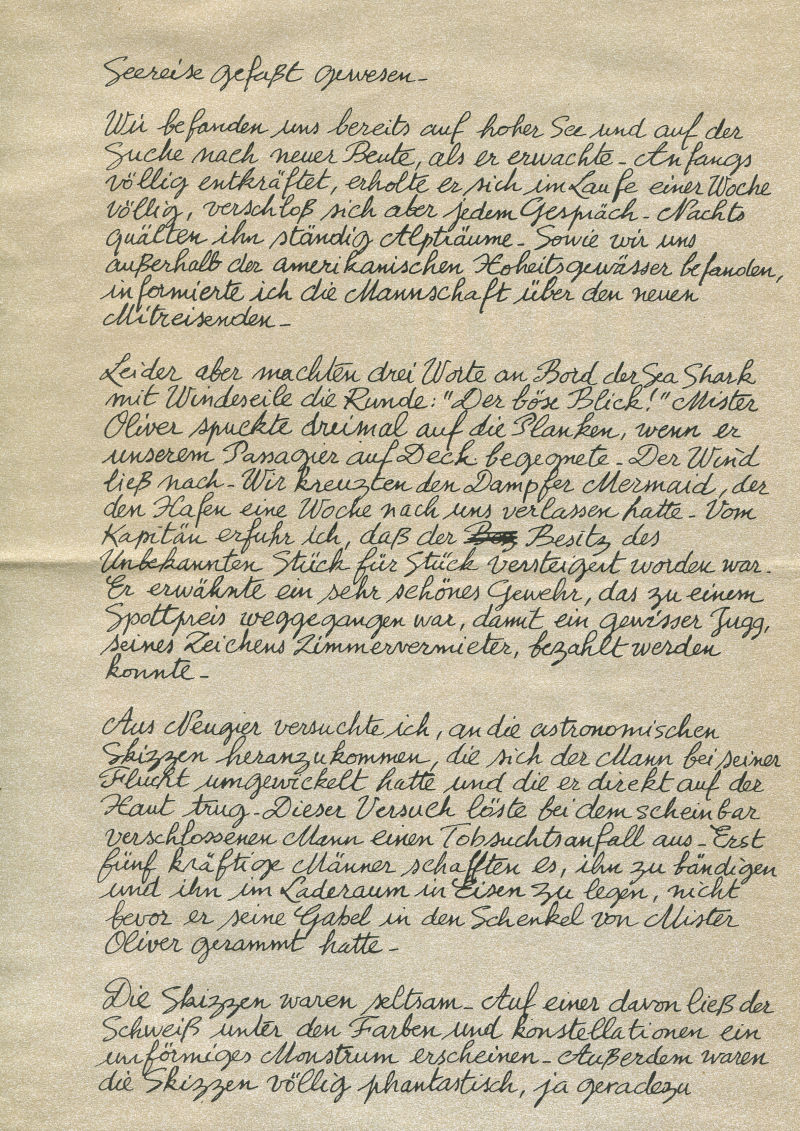 Seereise gefaßt gewesen_
Wir befanden uns bereits auf hoher See und auf der
Suche nach neuer Beute, als er erwachte_ Anfangs
völlig entkräftet, erholte er sich im Laufe einer Woche
völlig, verschloß sich aber jedem Gespräch_ Nachts
quälten ihn ständig Alpträume_ Sowie wir uns
außerhalb der amerikanischen Hoheitsgewässer befanden,
informierte ich die Mannschaft über den neuen
Mitreisenden_
Leider aber machten drei Worte an Bord der Sea Shark
mit Windeseile die Runde: "Der böse Blick!" Mister
Oliver spuckte dreimal auf die Planken, wenn er
unserem Passagier auf Deck begegnete_ Der Wind
ließ nach_ Wir kreuzten den Dampfer Mermaid, der
den Hafen eine Woche nach uns verlassen hatte_ Vom
Kapitän erfuhr ich, daß der Besitz des
Unbekannten Stück für Stück versteigert worden war_
Er erwähnte ein sehr schönes Gewehr, das zu einem
Spottpreis weggegangen war, damit ein gewisser Jugg,
seines Zeichens Zimmervermieter, bezahlt werden
konnte_
Aus Neugier versuchte ich, an die astronomischen
Skizzen heranzukommen, die sich der Mann bei seiner
Flucht umgewickelt hatte und die er direkt auf der
Haut trug_ Dieser Versuch löste bei dem scheinbar
verschlossenen Mann einen Tobsuchtsanfall aus_ Erst
fünf kräftige Männer schafften es, ihn zu bändigen
und ihn im Laderaum in Eisen zu legen, nicht
bevor er seine Gabel in den Schenkel von Mister
Oliver gerammt hatte_
Die Skizzen waren seltsam_ Auf einer davon ließ der
Schweiß unter den Farben und Konstellationen ein
unförmiges Monstrum erscheinen_ Außerdem waren
die Skizzen völlig phantastisch, ja geradezu